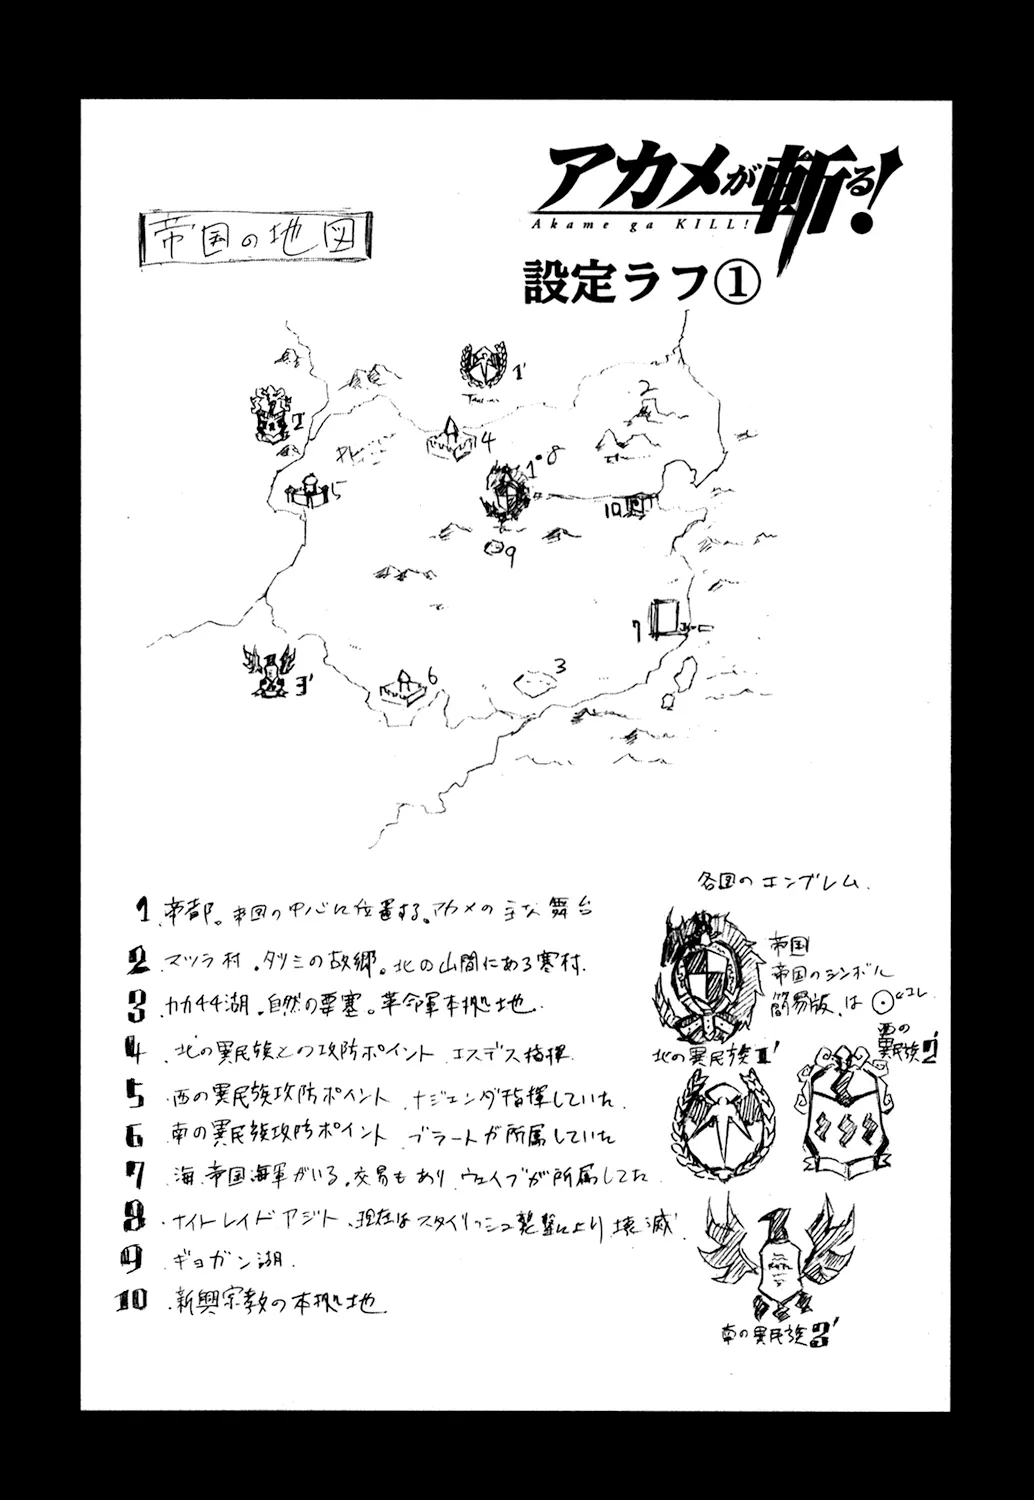 アカメが斬る!
Akame ga KILL!
設定ラフ①
帝国の地図
1'
2
2'
4
1・8
5
10
9
7
3
3'
6
1 帝都。帝国の中心に位置する。アカメの主な舞台
2 マツラ村。タツミの故郷。北の山間にある寒村。
3 カカ44湖。自然の要塞。革命軍本拠地。
4 北の異民族との攻防ポイント エスデス指揮
5 西の異民族攻防ポイント ナジェンダ指揮していた。
6 南の異民族攻防ポイント ブラートが所属していた
7 海、帝国海軍がいる。交易もあり ウェイブが所属してた
8 ナイトレイドアジト、現在はスタイリッシュ襲撃により壊滅
9 ギョガン湖
10 新興宗教の本拠地
各国のエンブレム
帝国
帝国のシンボル
簡易版は ⊙ ←コレ
北の異民族1'
西の
異民族2'
南の異民族3'